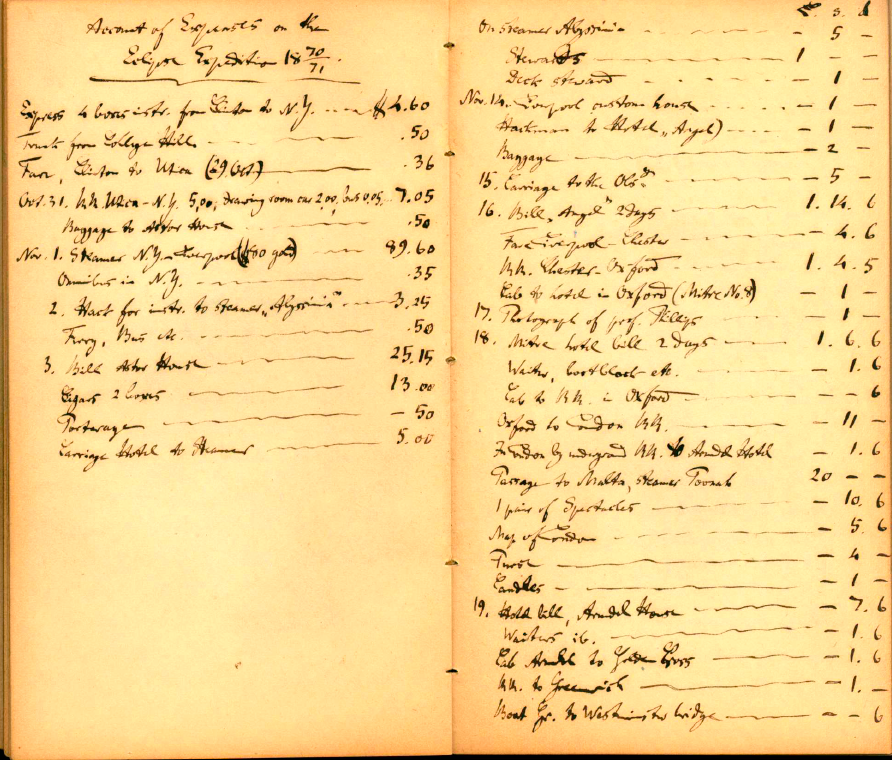 Account of Expenses on the
Eclipse Expedition 18 70/71.
Express 4 boxes instr. from Clinton to N.Y. — $4.60
Trunk from College Hill — .50
Fare, Clinton to Utica (29 Oct.) — .36
Oct. 31. RR. Utica - N.Y. 5.00, drawing room car 2.00, bus 0.05, 7.05
Baggage to Astor House — .50
Nov. 1. Steamer N.Y. - Liverpool ($80 gold) — 89.60
Omnibus in N.Y. — .35
2. Hack for instr. to steamer „Abyssinia" — 3.25
Ferry, Bus etc. — .50
3. Bill Astor House — 25.15
Cigars 2 boxes — 13.00
Porterage — 50
Carriage Hotel to Steamer — 5.00
£. s. d
On steamer Abyssinia — — 5 —
Stewards — 1 — —
Deck steward — — 1 —
Nov. 14. Liverpool custom house — — 1 —
Hackman to Hotel „Angel) — — 1 —
Baggage — — 2 —
15. Carriage to the Obsy — — 5 —
16. Bill „Angel" 2 days — 1. 14. 6
Fare Liverpool - Chester — — 4. 6
RR. Chester - Oxford — 1. 4. 5
Cab to hotel in Oxford (Mitre No. 8) — 1 —
17. Photograph of prof. Phillips — — 1 —
18. Mitre hotel bill 2 days — 1. 6. 6
Waiter, bootblack etc. — — 1. 6
Cab to RR. in Oxford — — — 6
Oxford to London RR. — — 11 —
In London by undergrund RR. to Arundel Hotel — 1. 6
Passage to Malta, steamer Poonah 20 — —
1 pair of Spectacles — — 10. 6
Map of London — — 5. 6
Purse — — 4 —
Candles — — 1 —
19. Hotel bill, Arundel House — — 7. 6
Waiters ib. — — 1. 6
Cab Arundel to Golden Cross — — 1. 6
RR. to Greenwich — — 1. —
Boat Gr. to Westminster bridge — — — 6